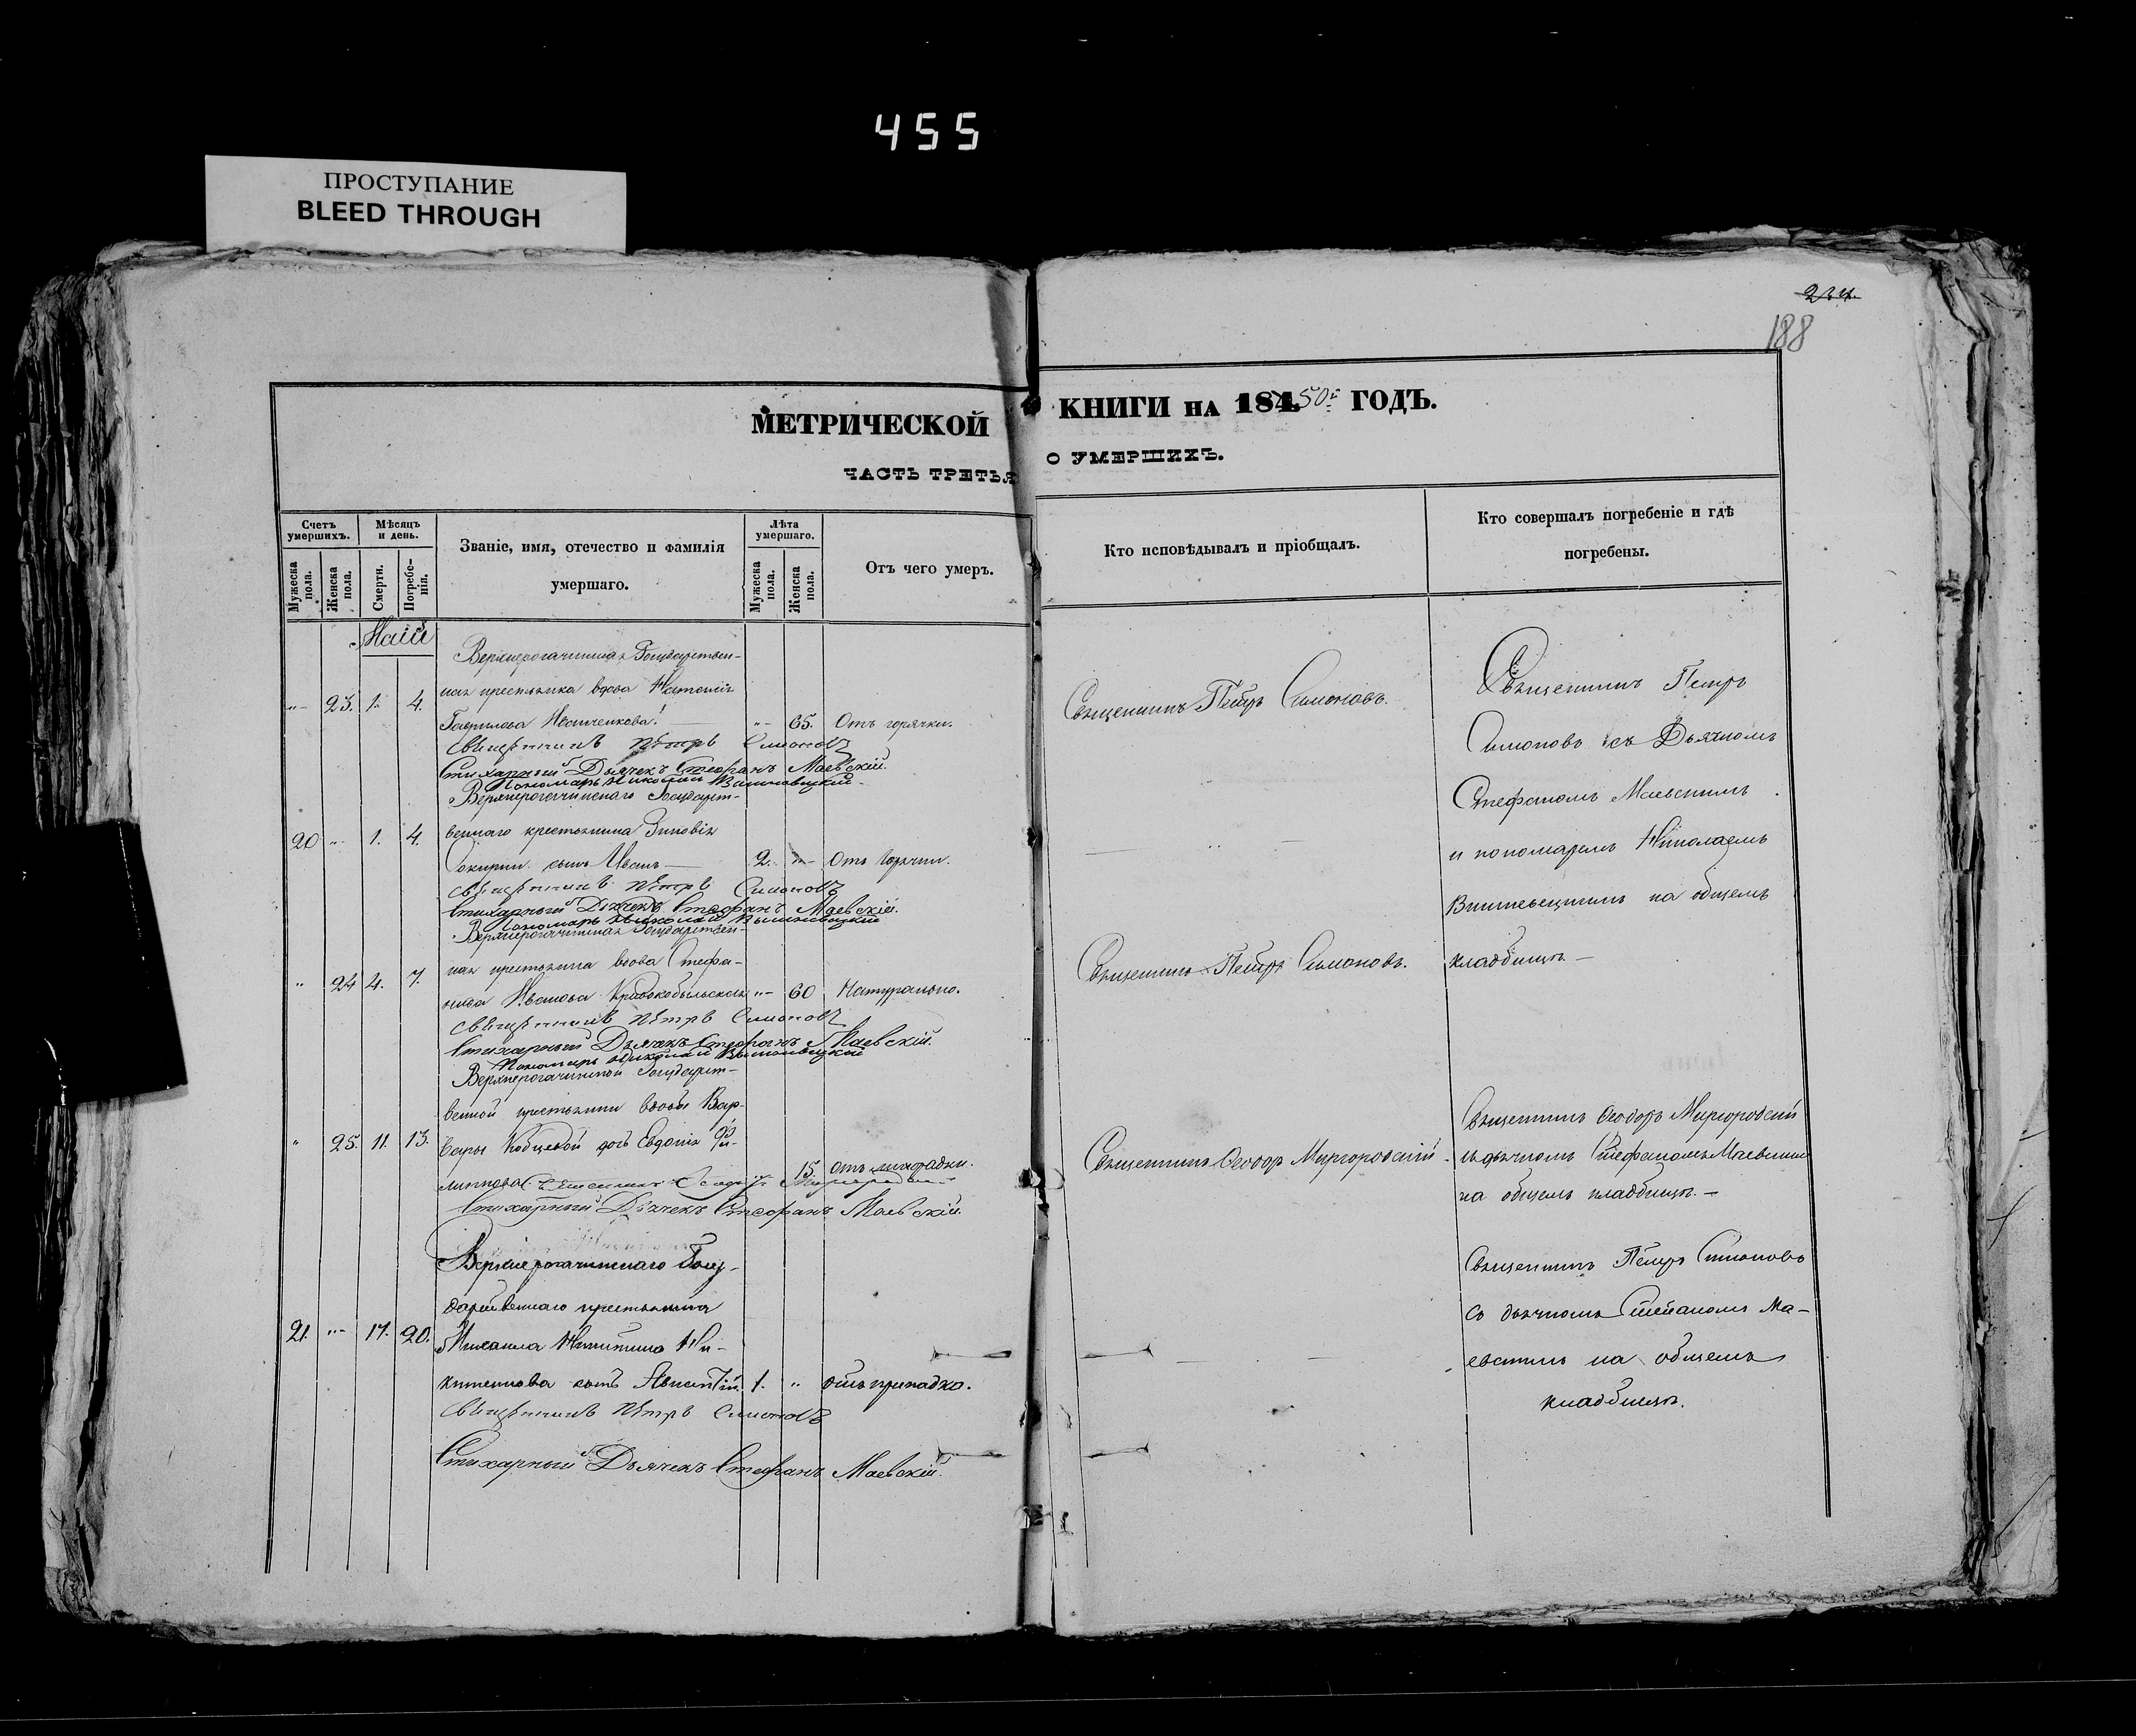 455
ПРОСТУПАНИЕ
BLEED THROUGH
234.
188
МЕТРИЧЕСКОЙ КНИГИ НА 184 50г. ГОДЪ.
ЧАСТЬ ТРЕТЬЯ О УМЕРШИХЪ.
Счетъ умершихъ.
Мужеска пола.
Женска пола.
Мѣсяцъ и день.
Смерти.
Погребенія.
Званіе, имя, отечество и фамилія умершаго.
Лѣта умершаго.
Мужеска пола.
Женска пола.
Отъ чего умеръ.
Кто исповѣдывалъ и пріобщалъ.
Кто совершалъ погребеніе и гдѣ погребены.
Маій
Верхнерогачинская Государствен-
ная крестьянка вдова Наталія
" 23. 1. 4. Гаврилова Иванченкова! " 65. Отъ горячки.
Священникъ Петръ Симоновъ.
Священникъ Петръ Симоновъ
Стихарный Дьячекъ Стефанъ Маевскій.
Пономарь Николай Вишневецкій
Священникъ Петръ
Симоновъ съ Дьячкомъ
Стефаномъ Маевскимъ
и пономаремъ Николаемъ
Вишневецкимъ на общемъ
кладбищѣ.
Верхнерогачинскаго Государст-
20 " 1. 4. веннаго крестьянина Зиновія
сынъ Иванъ 2. " Отъ горячки.
Священникъ Петръ Симоновъ
Стихарный Дьячекъ Стефанъ Маевскій.
Пономарь Николай Вишневецкій
Верхнерогачинская Государствен-
" 24 4. 7. ная крестьянка вдова Стефа-
нида Иванова Кривокобыльская " 60 Натурально.
Священникъ Петръ Симоновъ.
Священникъ Петръ Симоновъ
Стихарный Дьячекъ Стефанъ Маевскій.
Пономарь Николай Вишневецкій
Верхнерогачинской Государст-
венной крестьянки вдовы Вар-
" 25. 11. 13. вары Кобцевой дочь Евдокія Фи-
липпова 15 отъ лихорадки.
Священникъ Ѳеодоръ Миргородскій
Священникъ Ѳеодоръ Миргородскій
Стихарный Дьячекъ Стефанъ Маевскій.
Священникъ Ѳеодоръ Миргородскій
съ дьячкомъ Стефаномъ Маевскимъ
на общемъ кладбищѣ.
Верхнерогачинскаго Госу-
дарственнаго крестьянина
21. " 17. 20. Михаила Никитина Ни-
китенкова сынъ Авксентій 1. " отъ припадка.
Священникъ Петръ Симоновъ
Стихарный Дьячекъ Стефанъ Маевскій.
Священникъ Петръ Симоновъ
съ дьячкомъ Стефаномъ Ма-
евскимъ на общемъ
кладбищѣ.